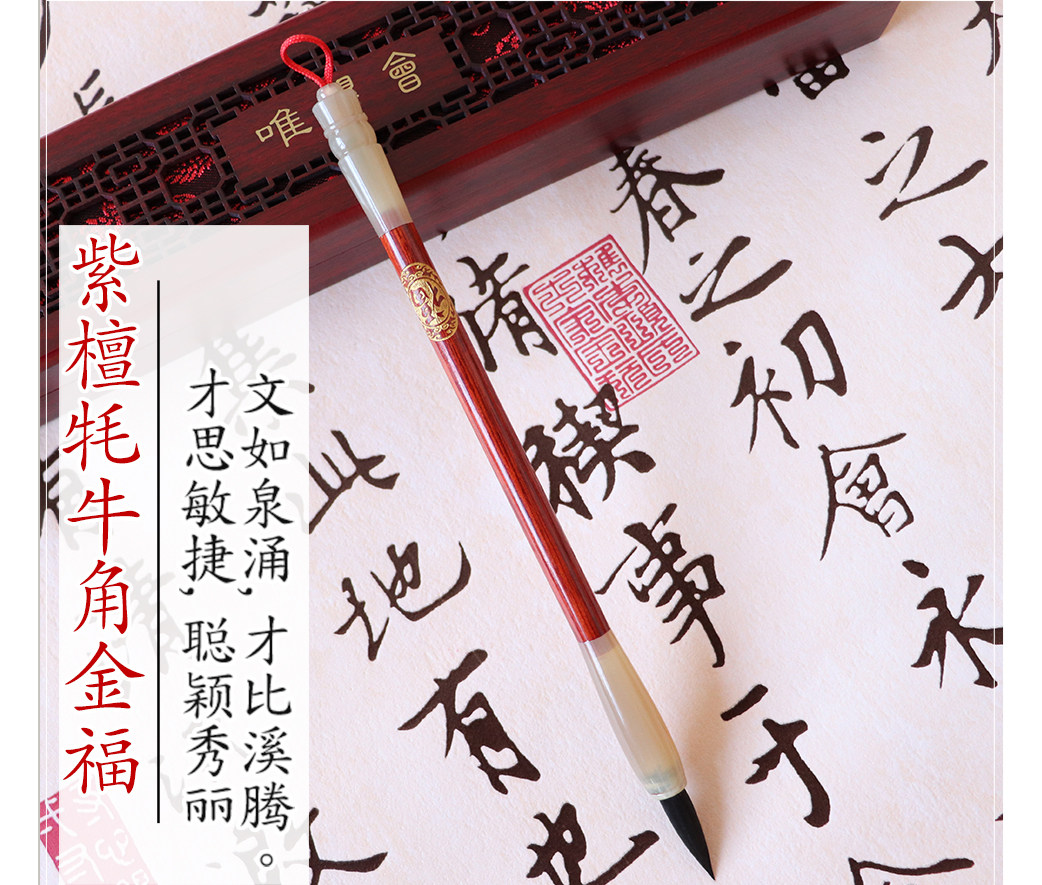 唯
會
紫檀牦牛角金福
文如泉涌,才比溪腾。
才思敏捷,聪颖秀丽
之
永
春之初會
脩禊事于
此地有
也